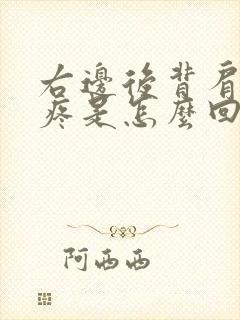 右邊後背肩
疼是怎麼回
阿西西